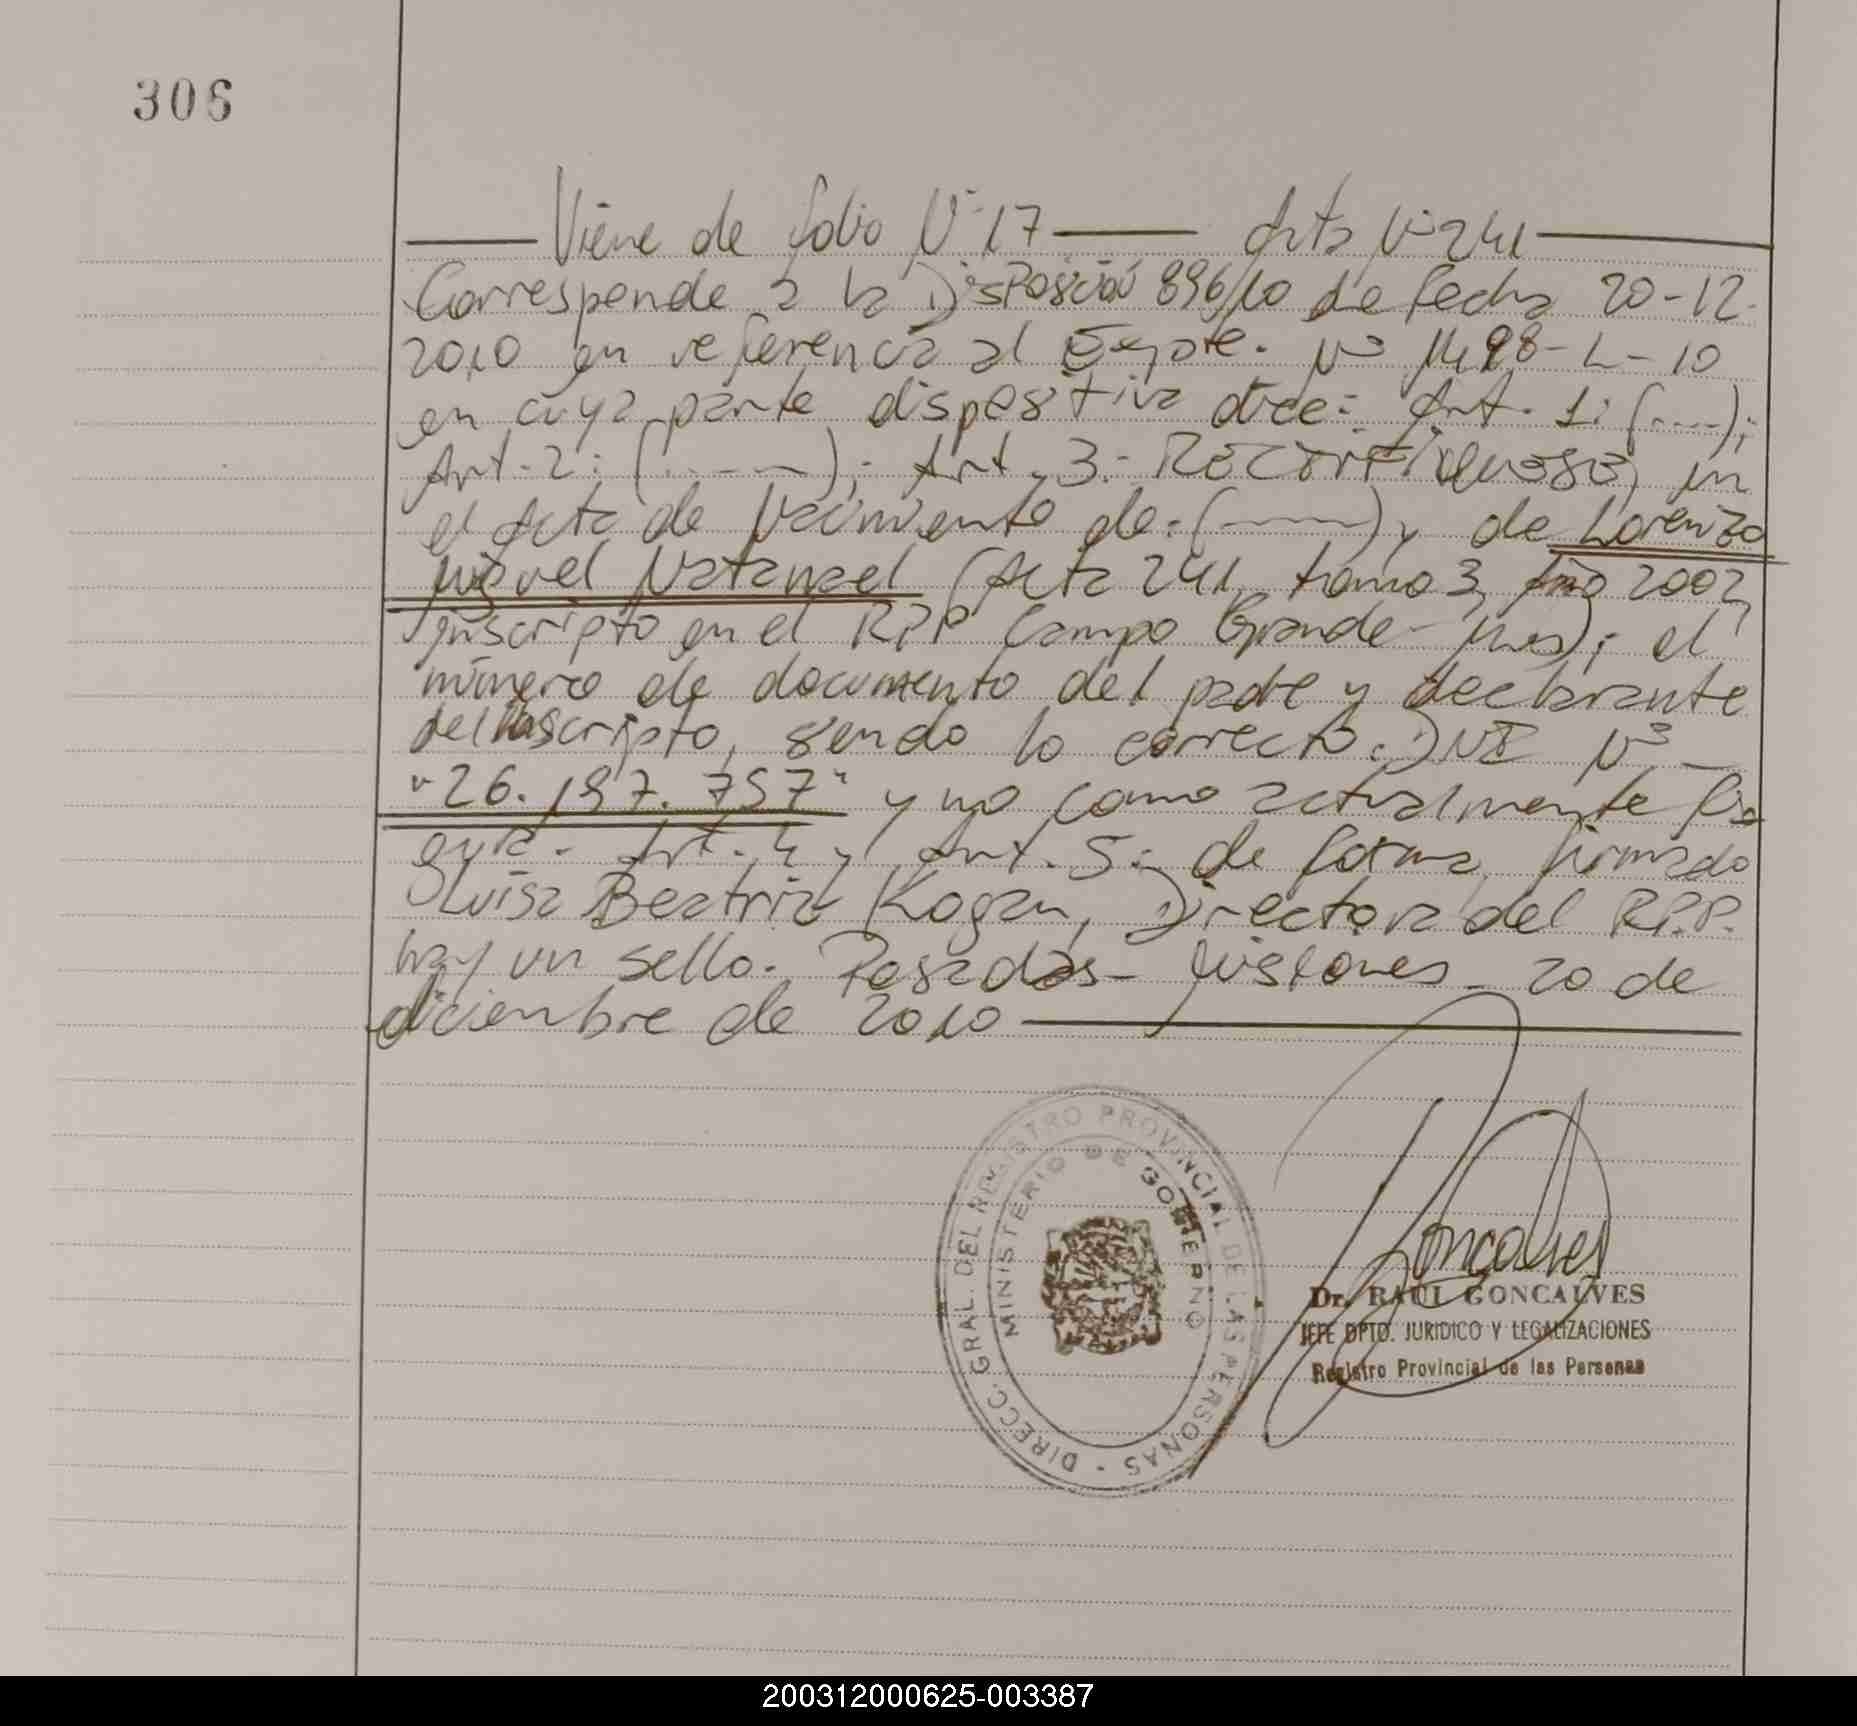 306
Viene de folio Nº 17 — Acta Nº 241
Corresponde a la Disposición 896/10 de fecha 20-12-
2010 en referencia al Expte. Nº 1498-L-10
en cuya parte dispositiva dice: Art. 1: (----);
Art. 2: (-----); Art. 3: RECTIFIQUESE, en
el Acta de Nacimiento de: (-----) y de Lorenzo
Miguel Natanael (Acta 241, tomo 3, Año 2002,
inscripto en el RPP Campo Grande - Mnes); el
número de documento del padre y declarante
del inscripto, siendo lo correcto: DNI Nº
"26.197.757" y no como actualmente fi
gura. Art. 4 y Art. 5: de forma, firmado
Luisa Beatriz Kogan, Directora del R.P.P.
hay un sello. Posadas - Misiones - 20 de
diciembre de 2010
DIRECC. GRAL. DEL REGISTRO PROVINCIAL DE LAS PERSONAS
MINISTERIO DE GOBIERNO
Goncalves
Dr. RAUL GONCALVES
JEFE DPTO. JURIDICO Y LEGALIZACIONES
Registro Provincial de las Personas
200312000625-003387